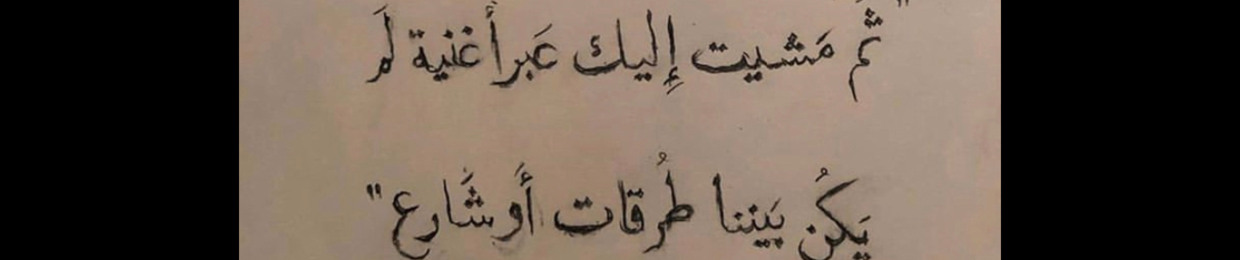 "ثم مَشيت إليك عَبر أغنية لَم
يَكُن بَيننا طُرقات أَو شَارع"